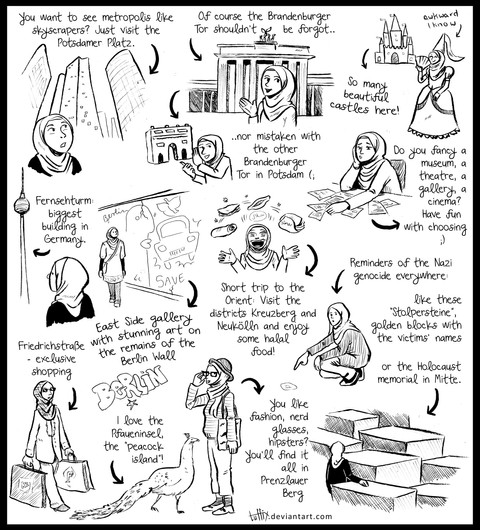 You want to see metropolis like
skyscrapers? Just visit the
Potsdamer Platz.
Of course the Brandenburger
Tor shouldn't be forgot..
awkward
I know
So many
beautiful
castles here!
..nor mistaken with
the other
Brandenburger
Tor in Potsdam (;
Do you fancy a
museum, a
theatre, a
gallery, a
cinema?
Have fun
with choosing
;)
Fernsehturm:
biggest
building in
Germany.
SAVE
East Side gallery
with stunning art on
the remains of the
Berlin Wall
Short trip to the
Orient: Visit the
districts Kreuzberg and
Neukölln and enjoy
some halal
food!
Reminders of the Nazi
genocide everywhere:
like these
"Stolpersteine",
golden blocks with
the victims' names
or the Holocaust
memorial in Mitte.
Friedrichstraße
- exclusive
shopping
BERLIN
I love the
Pfaueninsel,
the "peacock
island"!
You like
fashion, nerd
glasses,
hipsters?
You'll find it
all in
Prenzlauer
Berg
tuffix.deviantart.com